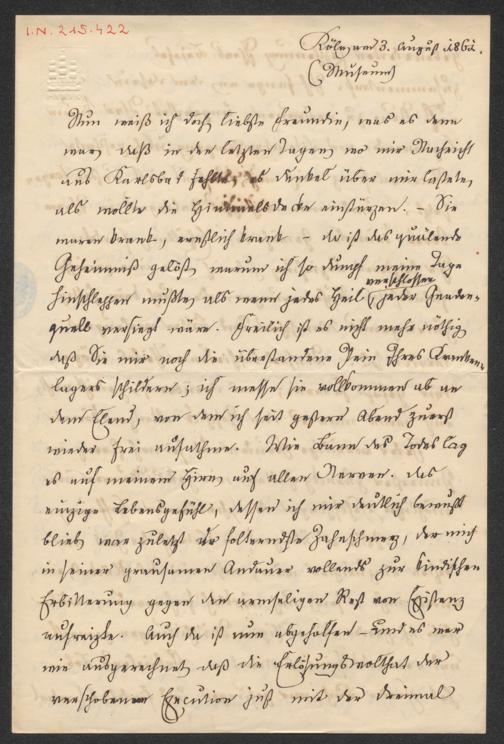 I.N. 215.422
Köln am 3. August 1861.
(Museum)
Nun weiß ich doch, liebste Freundin, was es denn
war, daß in den letzten Tagen, wo mir Nachricht
aus Karlsbad fehlte, es dunkel über mir lastete,
als wollte die Himmelsdecke einstürzen. – Sie
waren krank, ernstlich krank – da ist das quälende
Geheimniß gelöst, warum ich so dumpf meine Tage
hinschleppen mußte, als wenn jedes Heil verschlossen, jeder Gnaden-
quell versiegt wäre. Freilich ist es nicht mehr nöthig,
daß Sie mir noch die überstandene Pein Ihres Kranken-
lagers schildern; ich messe sie vollkommen ab an
dem Elend, von dem ich seit gestern Abend zuerst
wieder frei aufathme. Wie Bann des Todes lag
es auf meinem Hirn, auf allen Nerven. Das
einzige Lebensgefühl, dessen ich mir deutlich bewußt
blieb, war zuletzt der folterndste Zahnschmerz, der mich
in seiner grausamen Andauer vollends zur kindischen
Erbitterung gegen den armseligen Rest von Existenz
aufreizte. Auch da ist nun abgeholfen – und es war
wie ausgerechnet, daß die Erlösungswolthat der
verschobenen Execution just mit der dreimal